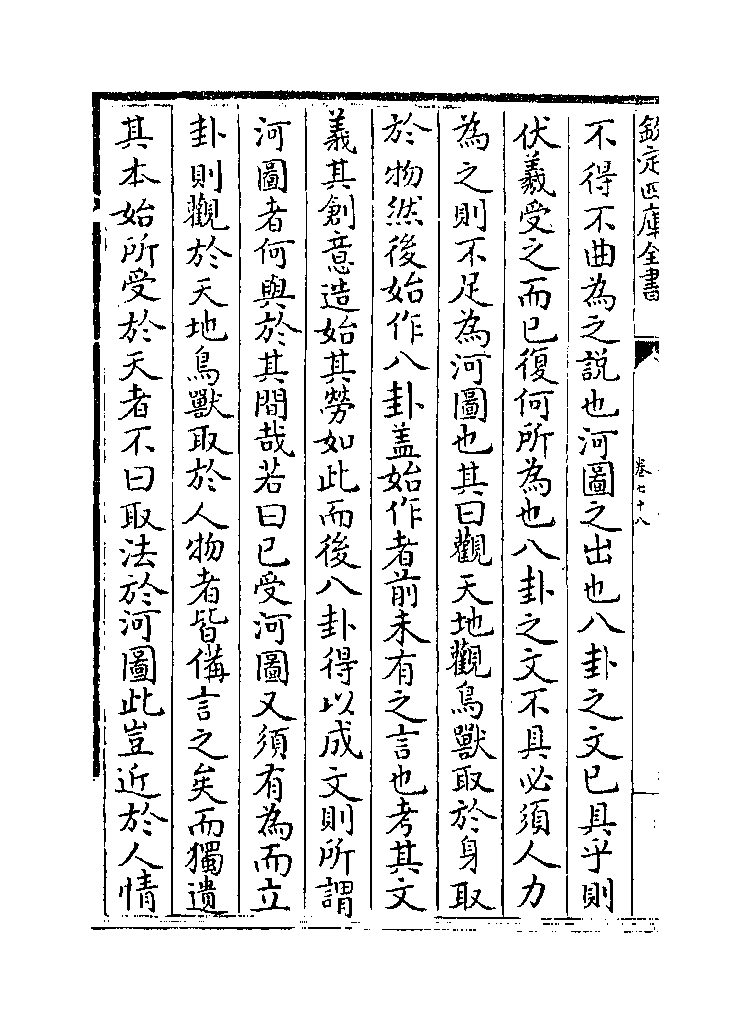 欽定四庫全書
卷七十八
不得不曲為之說也河圖之出也八卦之文已具乎則
伏羲受之而已復何所為也八卦之文不具必須人力
為之則不足為河圖也其曰觀天地觀鳥獸取於身取
於物然後始作八卦盖始作者前未有之言也考其文
義其創意造始其勞如此而後八卦得以成文則所謂
河圖者何與於其間哉若曰已受河圖又須有為而立
卦則觀於天地鳥獸取於人物者皆備言之矣而獨遺
其本始所受於天者不曰取法於河圖此豈近於人情